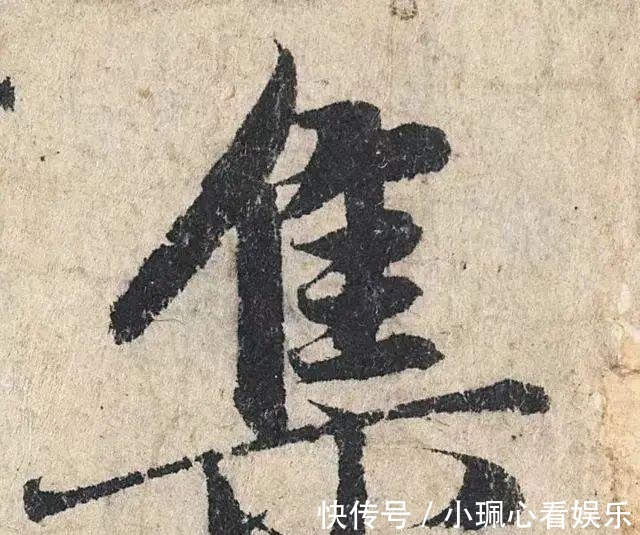 集
快传号/小珮心看娱乐